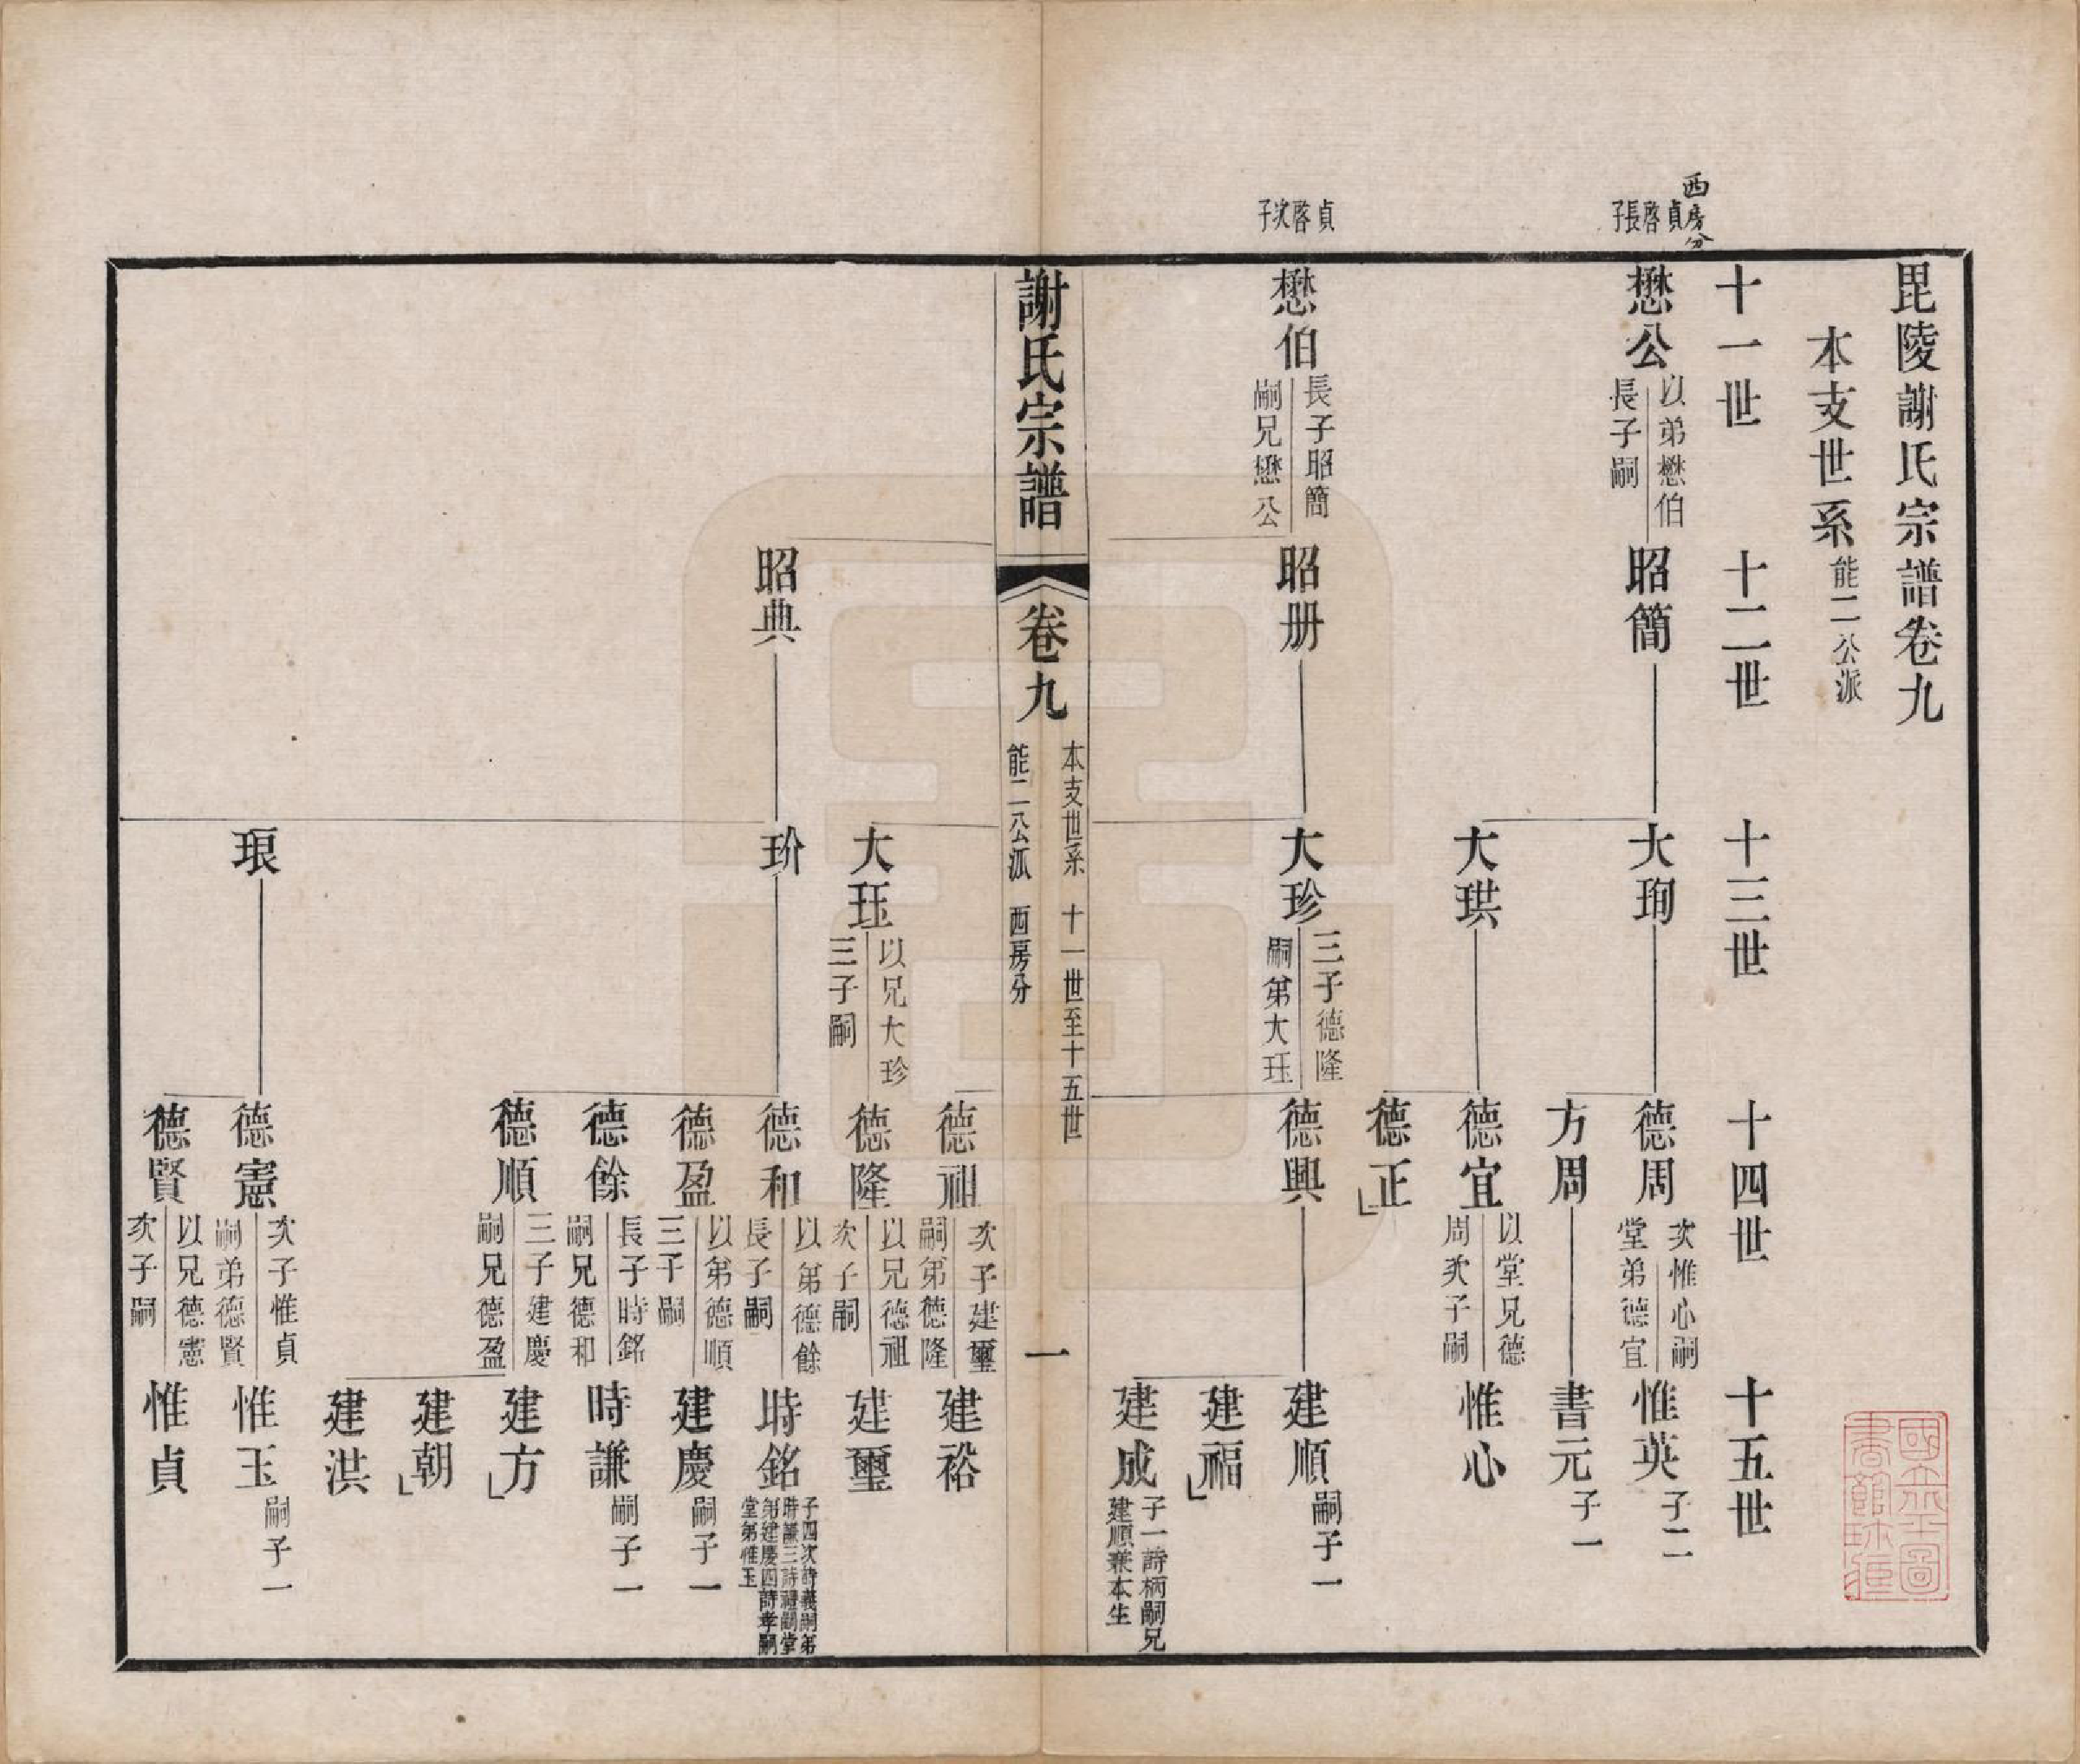 毘陵謝氏宗譜卷九
本支世系能二公派
十一世
十二世
十三世
十四世
十五世
西房分
貞啓長子
懋公
以弟懋伯
長子嗣
昭簡
大珣
德周
次惟心嗣
堂弟德宜
惟英
子二
方周
書元
子一
大珙
德宜
以堂兄德
周次子嗣
惟心
德正
貞啓次子
懋伯
長子昭簡
嗣兄懋公
昭册
大珍
三子德隆
嗣弟大珏
德興
建順
嗣子一
建福
建成
子一詩柄嗣兄
建順兼本生
謝氏宗譜
卷九
本支世系 十一世至十五世
能二公派 西房分
一
德祖
次子建璽
嗣弟德隆
建裕
大珏
以兄大珍
三子嗣
德隆
以兄德祖
次子嗣
建璽
昭典
玠
德和
以弟德餘
長子嗣
時銘
子四次詩義嗣弟
時謙三詩禮嗣堂
弟建慶四詩孝嗣
堂弟惟玉
德盈
以弟德順
三子嗣
建慶
嗣子一
德餘
長子時銘
嗣兄德和
時謙
嗣子一
德順
三子建慶
嗣兄德盈
建方
建朝
建洪
琅
德憲
次子惟貞
嗣弟德賢
惟玉
嗣子一
德賢
以兄德憲
次子嗣
惟貞